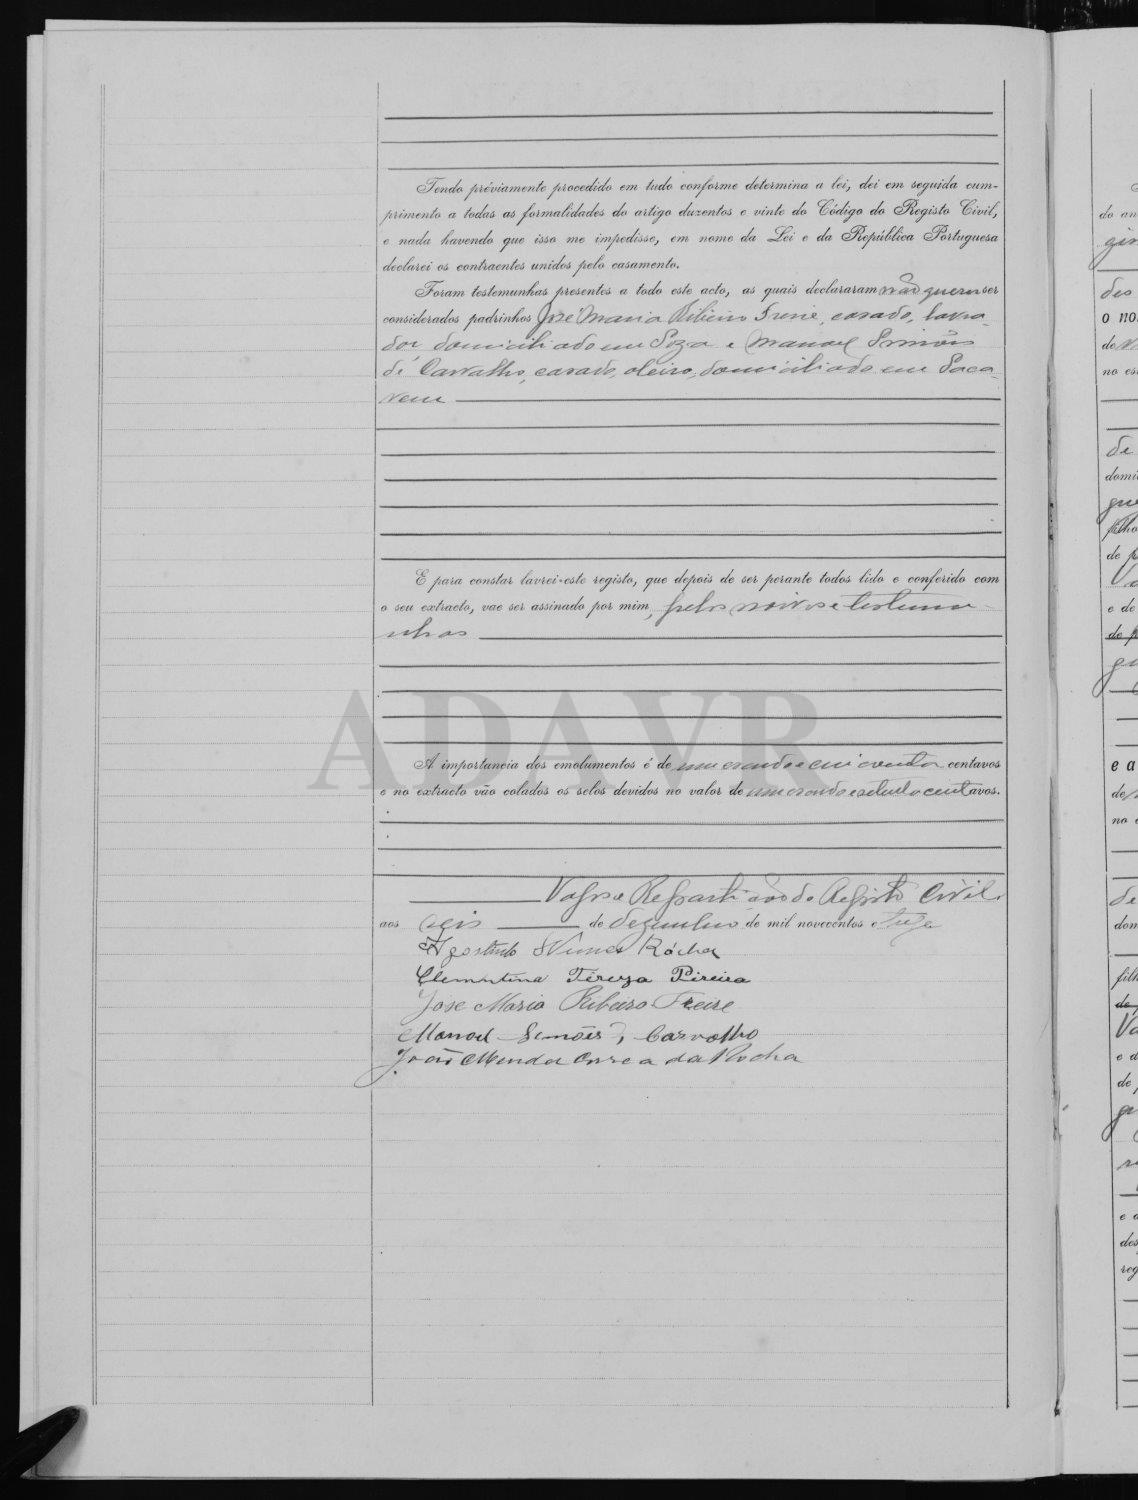 Tendo préviamente procedido em tudo conforme determina a lei, dei em seguida cum-
primento a todas as formalidades do artigo duzentos e vinte do Código do Registo Civil,
e nada havendo que isso me impedisse, em nome da Lei e da República Portuguesa
declarei os contraentes unidos pelo casamento.
Foram testemunhas presentes a todo este acto, as quais declararam não querem ser
considerados padrinhos José Maria Ribeiro Freire, casado, lavra-
dor domiciliado em Soza e Manoel Simões
de Carvalho, casado, oleiro, domiciliado em Saca-
vem
E para constar lavrei este registo, que depois de ser perante todos lido e conferido com
o seu extracto, vae ser assinado por mim, pelos noivos e testemu-
nhas
ADAVR
A importancia dos emolumentos é de um escudo e cincoenta centavos
e no extracto vão colados os selos devidos no valor de um escudo e centavos.
Vagos e Repartição do Registo Civil,
aos seis de Dezembro de mil novecentos e treze
Agostinho Nunes Rócha
Clementina Tereza Pireira
Jose Maria Ribeiro Freire
Manoel Simões Carvalho
João Mendes Correa da Rocha
do an
des
o no
de
no es
de
domi
filho
de p
e de
do p
e a
de
no
de
dom
filh
de
e d
de
e a
des
reg